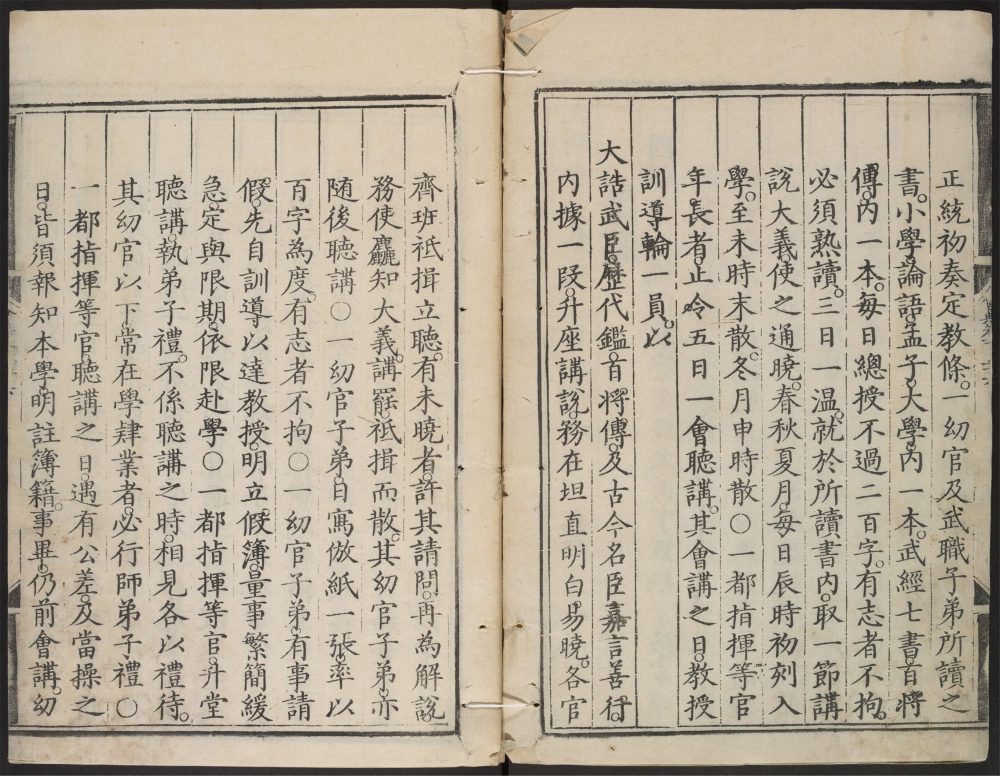 正統初奏定教條。一幼官及武職子弟所讀之
書。小學論語。孟子大學。内一本。武經七書。百將
傳。内一本。每日總授不過二百字。有志者不拘。
必須熟讀。三日一温。就於所讀書内。取一節講
說大義。使之通曉。春秋夏月。每日辰時初刻入
學。至未時末散。冬月申時散○一都指揮等官
年長者。止令五日一會聽講。其會講之日。教授
訓導輪一員。以
大誥武臣。歷代鑑。百將傳。及古今名臣嘉言善行。
内據一段。升座講說。務在坦直明白易曉。各官
齊班祗揖立聽。有未曉者。許其請問。再為解說
務使麤知大義。講罷。祗揖而散。其幼官子弟。亦
随後聽講○一幼官子弟。日寫倣紙一張。率以
百字為度。有志者不拘○一幼官子弟。有事請
假。先自訓導以達教授。明立假簿。量事繁簡緩
急。定與限期。依限赴學○一都指揮等官。升堂
聽講。執弟子禮。不係聽講之時。相見各以禮待。
其幼官以下。常在學肄業者。必行師弟子禮○
一都指揮等官。聽講之日。遇有公差。及當操之
日。皆須報知本學。明註簿籍。事畢。仍前會講。幼